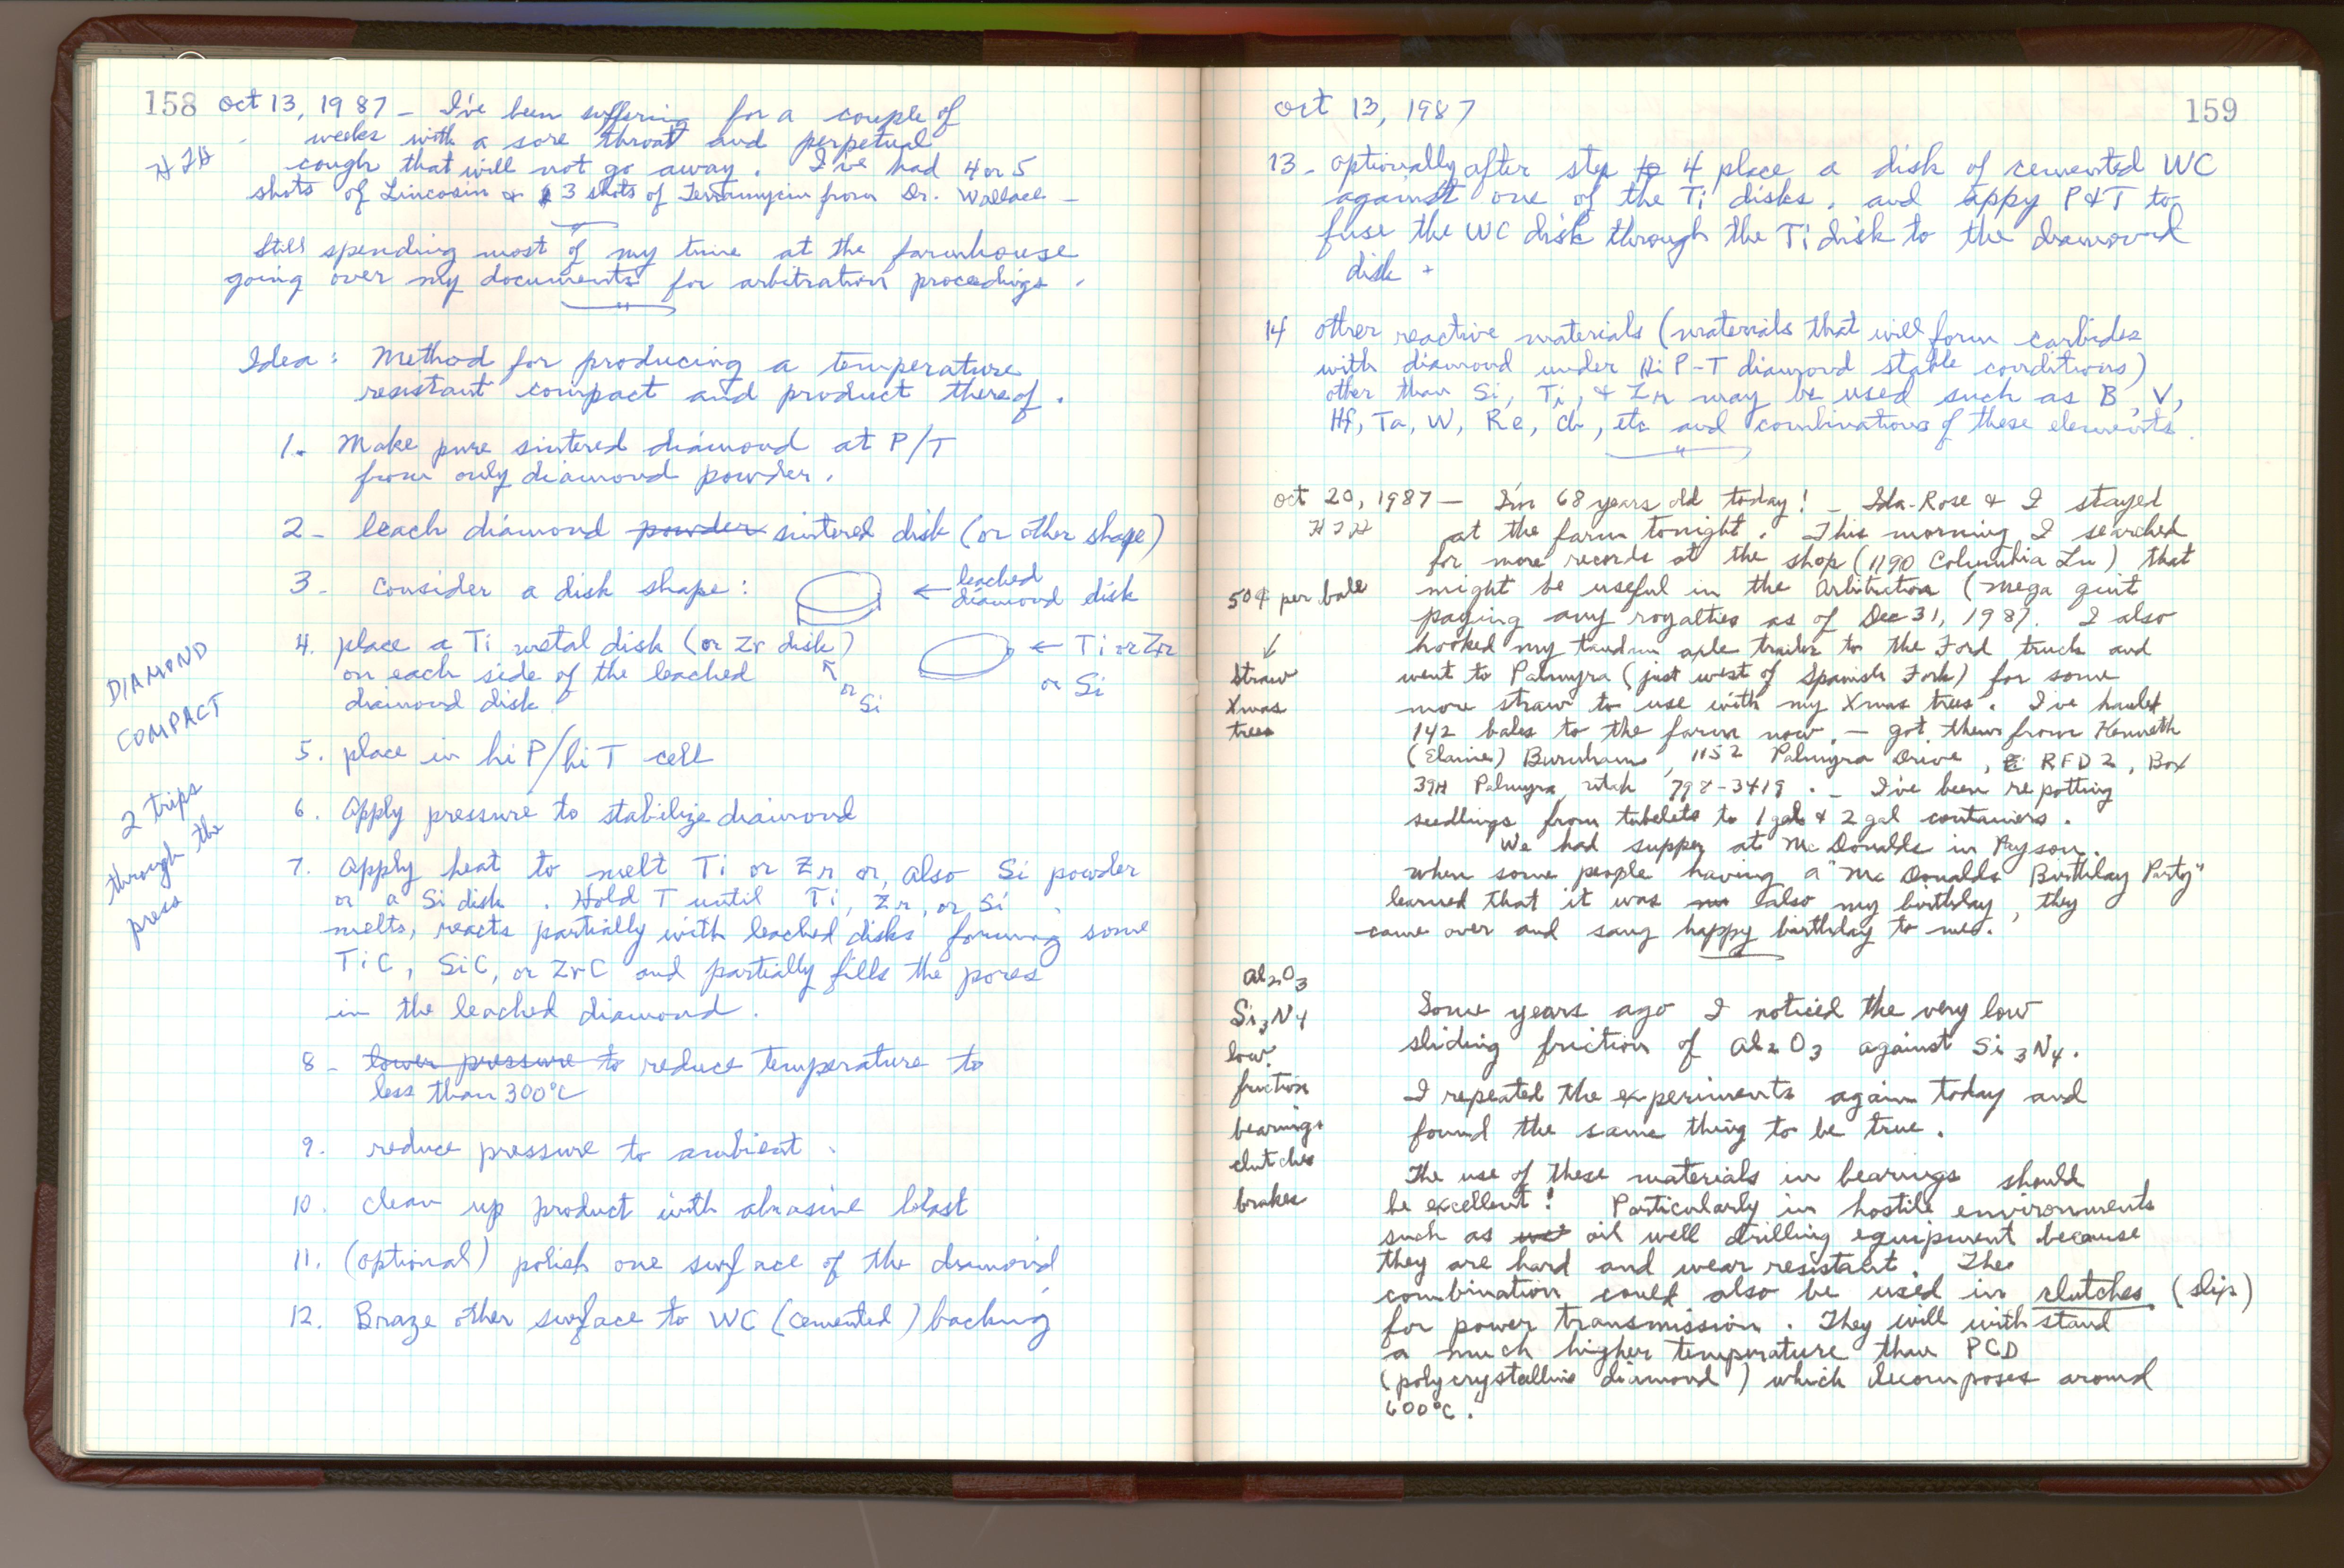 158 Oct 13, 1987 – I've been suffering for a couple of
weeks with a sore throat and perpetual
HTH
cough that will not go away. I've had 4 or 5
shots of Lincosin & 3 shots of Terramycin from Dr. Wallace –
Still spending most of my time at the farmhouse
going over my documents for arbitration proceedings.
Idea: Method for producing a temperature
resistant compact and product thereof.
1. Make pure sintered diamond at P/T
from only diamond powder.
2 – leach diamond powder sintered disk (or other shape)
3 – Consider a disk shape: ← leached
diamond disk
4. place a Ti metal disk (or Zr disk) ← Ti or Zr
on each side of the leached or Si or Si
diamond disk.
DIAMOND
COMPACT
5. place in hi P/hi T cell
2 trips
through the
press
6. Apply pressure to stabilize diamond
7. Apply heat to melt Ti or Zr or, also Si powder
or a Si disk. Hold T until Ti, Zr, or Si
melts, reacts partially with leached disks forming some
TiC, SiC, or ZrC and partially fills the pores
in the leached diamond.
8 – lower pressure to reduce temperature to
less than 300°C
9. reduce pressure to ambient.
10. clean up product with abrasive blast
11. (optional) polish one surface of the diamond
12. Braze other surface to WC (cemented) backing
Oct 13, 1987 159
13 – optionally after step 4 place a disk of cemented WC
against one of the Ti disks, and appy P&T to
fuse the WC disk through the Ti disk to the diamond
disk.
14 other reactive materials (materials that will form carbides
with diamond under Hi P-T diamond stable conditions)
other than Si, Ti, & Zr may be used such as B, V,
Hf, Ta, W, Re, Cb, etc and combinations of these elements.
Oct 20, 1987 – I'm 68 years old today! – Ida-Rose & I stayed
HTH
at the farm tonight. This morning I searched
for more records at the shop (1190 Columbia Ln) that
might be useful in the Arbitration (Mega quit
paying any royalties as of Dec 31, 1987. I also
hooked my tandum axle trailer to the Ford truck and
went to Palmyra (just west of Spanish Fork) for some
more straw to use with my Xmas trees. I've hauled
142 bales to the farm now. – got them from Kenneth
(Elaine) Burnham, 1152 Palmyra Drive, RFD 2, Box
39A Palmyra, Utah 798-3419. – I've been repotting
seedlings from tubelets to 1 gal & 2 gal containers.
50¢ per bale
↓
Straw
Xmas
trees
We had supper at McDonalds in Payson.
when some people having a "McDonalds Birthday Party"
learned that it was also my birthday, they
came over and sang happy birthday to me.
Al₂O₃
Si₃N₄
low
friction
bearings
clutches
brakes
Some years ago I noticed the very low
sliding friction of Al₂O₃ against Si₃N₄.
I repeated the experiments again today and
found the same thing to be true.
The use of these materials in bearings should
be excellent! Particularly in hostile environments
such as oil well drilling equipment because
they are hard and wear resistant. The
combination could also be used in clutches (slip)
for power transmission. They will with stand
a much higher temperature than PCD
(polycrystalline diamond) which decomposes around
600°C.